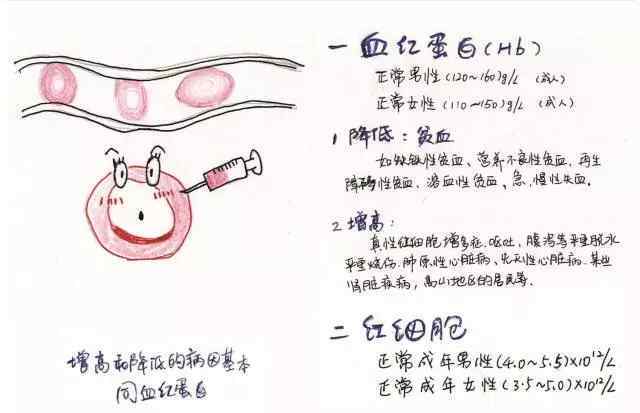 一 血红蛋白(Hb)
正常男性(120~160)g/L (成人)
正常女性(110~150)g/L (成人)
1 降低：贫血
如缺铁性贫血、营养不良性贫血、再生
障碍性贫血、溶血性贫血、急、慢性失血。
2. 增高：
真性红细胞增多症、呕吐，腹泻等严重脱水
严重烧伤、肺原性心脏病、先天性心脏病、某些
肾脏疾病，高山地区的居民等.
二 红细胞
正常成年男性(4.0~5.5)×10¹²/L
正常成年女性(3.5~5.0)×10¹²/L
增高和降低的病因基本
同血红蛋白